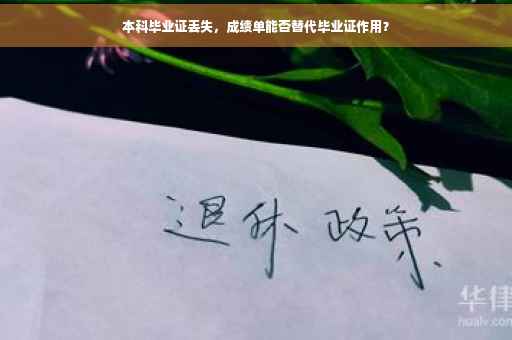 本科毕业证丢失，成绩单能否替代毕业证作用？
退休 政策
华律
hualv.com